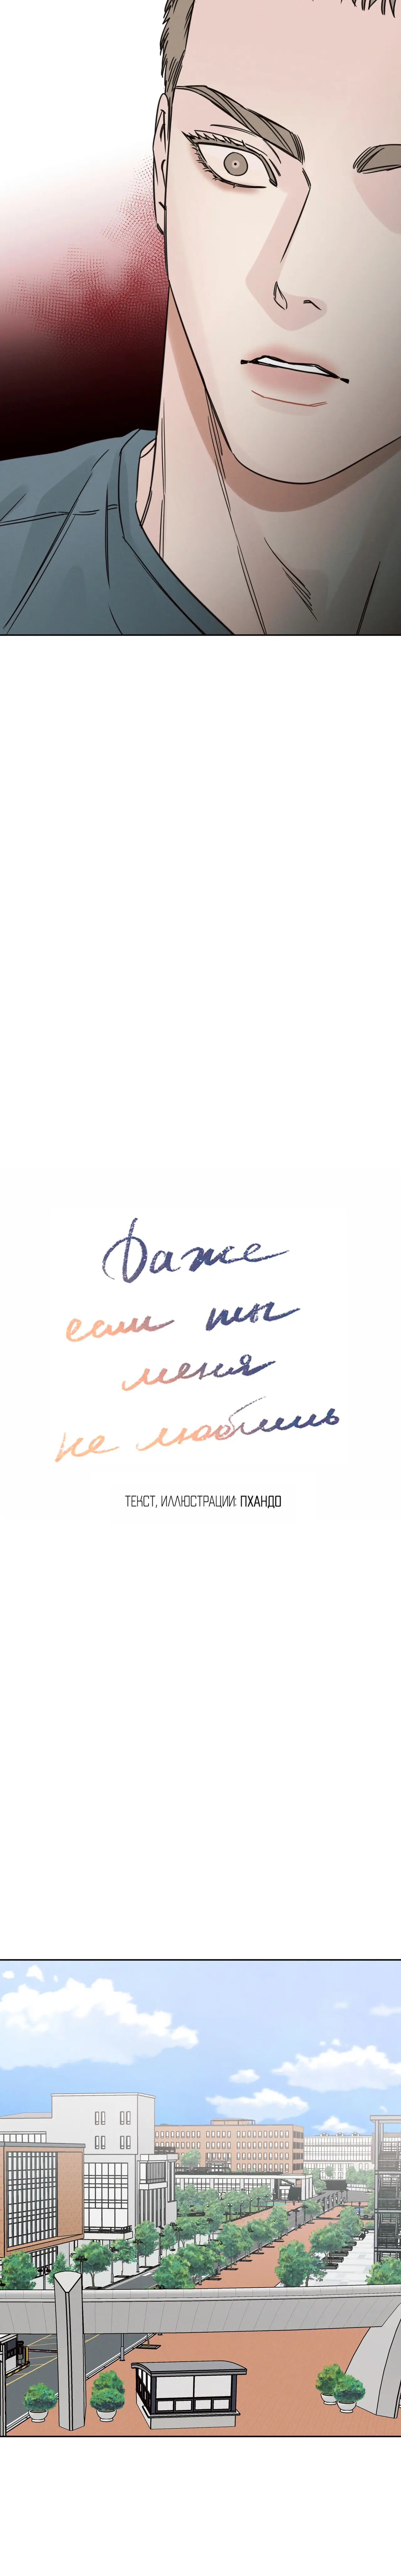 Даже
если ты
меня
не любишь
ТЕКСТ, ИЛЛЮСТРАЦИИ: ПХАНДО